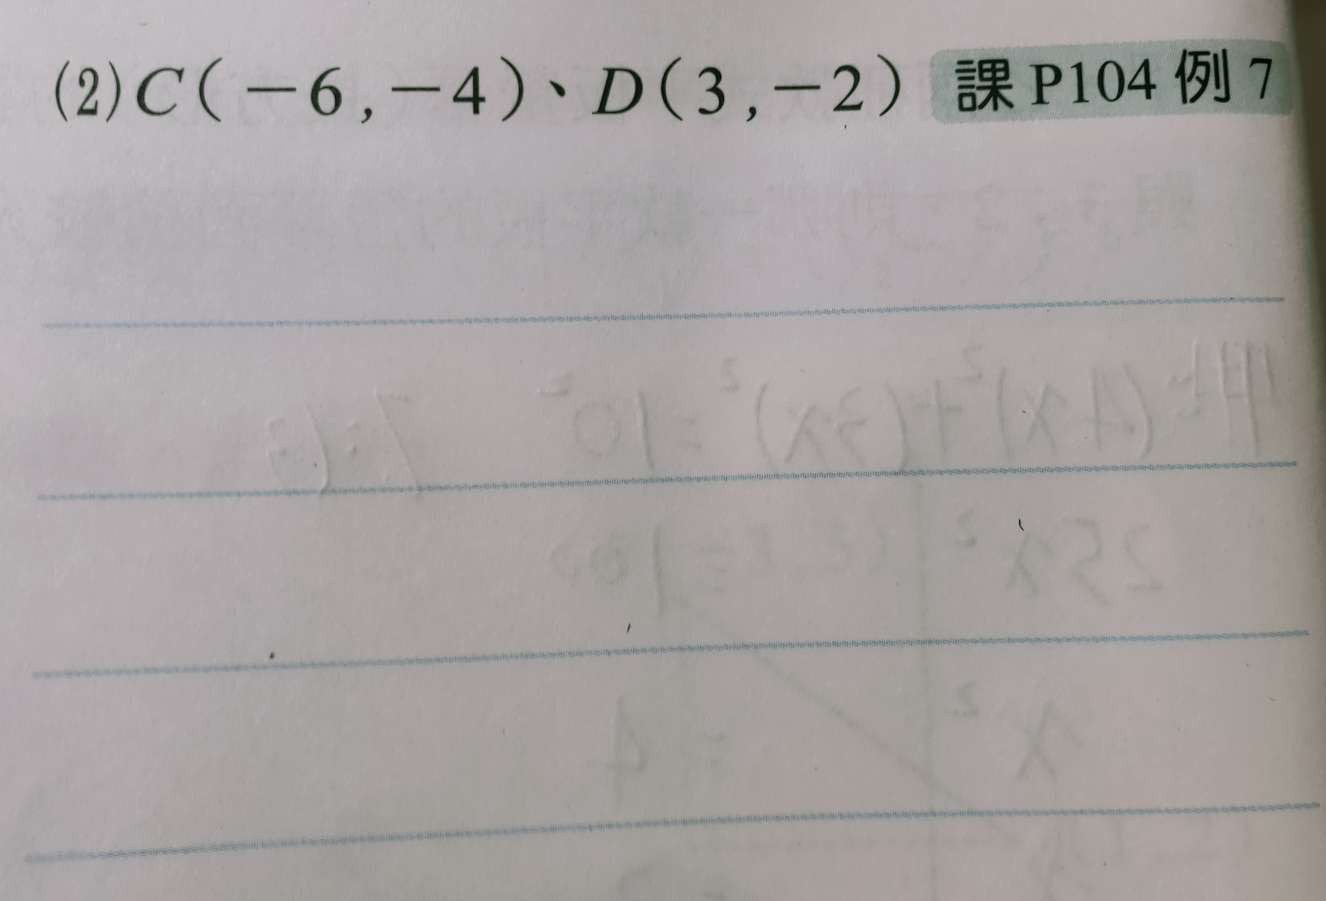 (2)C(－6,－4)、D(3,－2) 課P104例7